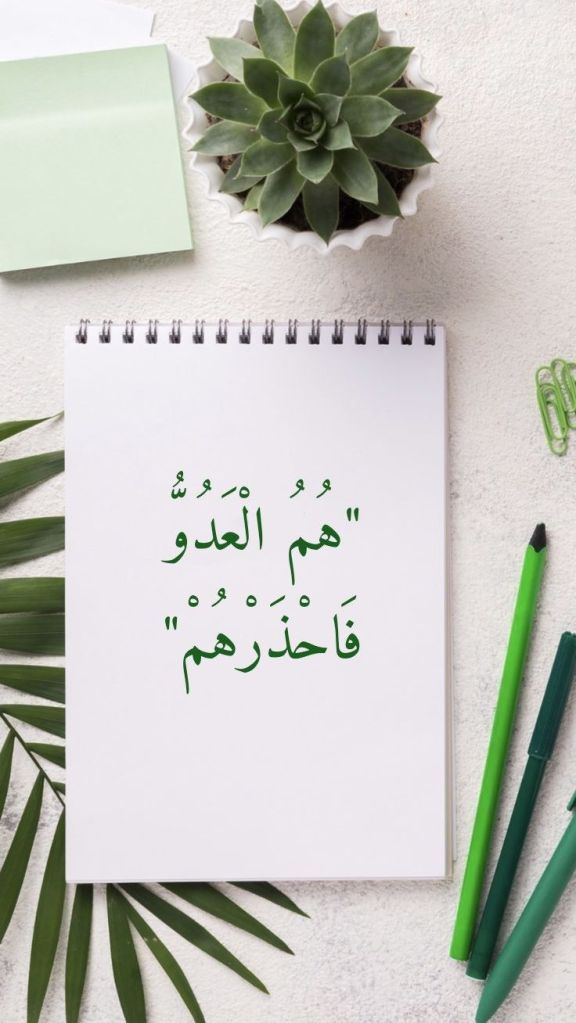 "هُمُ الْعَدُوُّ
فَاحْذَرْهُمْ"